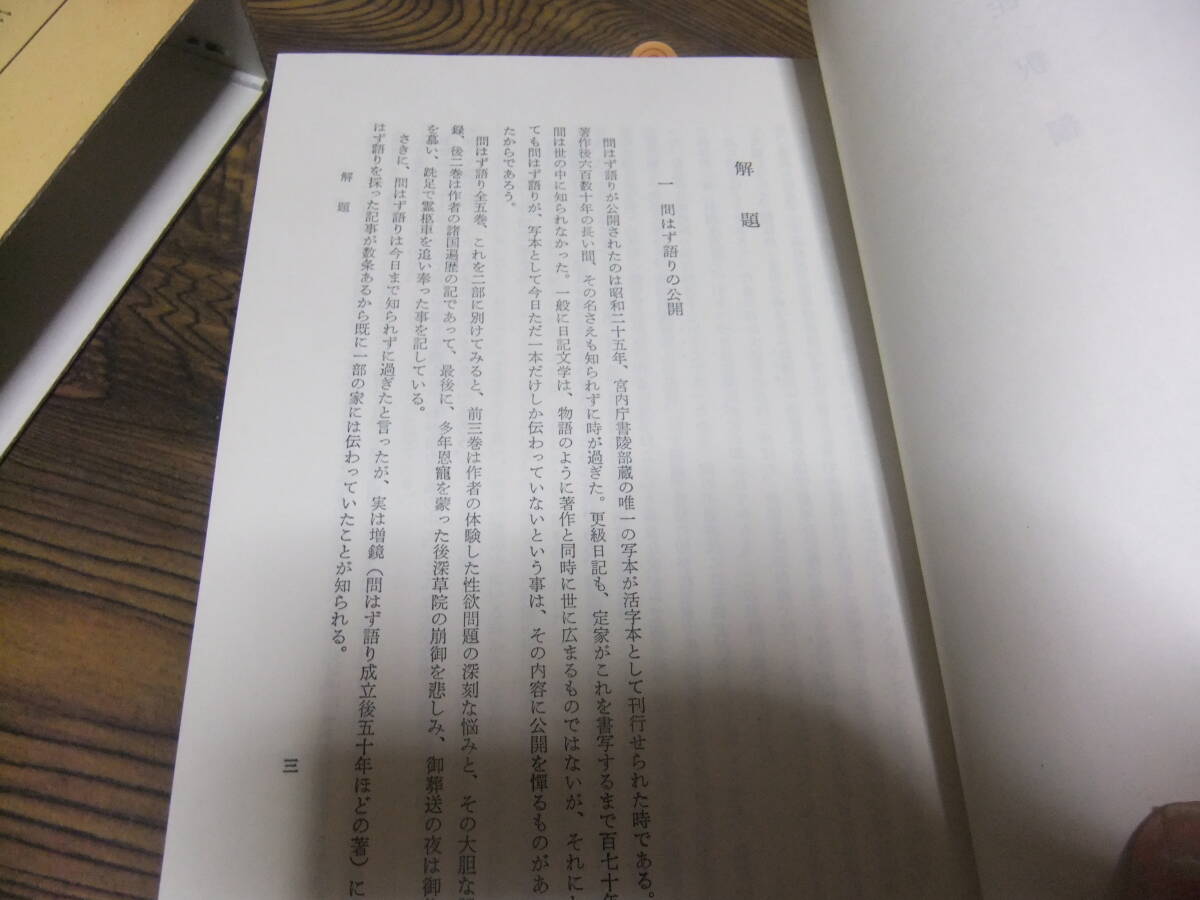 解題
一 問はず語りの公開
問はず語りが公開されたのは昭和二十五年、宮内庁書陵部蔵の唯一の写本が活字本として刊行せられた時である。
著作後六百数十年の長い間、その名さえも知られずに時が過ぎた。更級日記も、定家がこれを書写するまで百七十年
間は世の中に知られなかった。一般に日記文学は、物語のように著作と同時に世に広まるものではないが、それに
ても問はず語りが、写本として今日ただ一本だけしか伝わっていないという事は、その内容に公開を憚るものがあ
たからであろう。
問はず語り全五巻、これを二部に別けてみると、前三巻は作者の体験した性欲問題の深刻な悩みと、その大胆な
録、後二巻は作者の諸国遍歴の記であって、最後に、多年恩寵を蒙った後深草院の崩御を悲しみ、御葬送の夜は御
を慕い、跣足で霊柩車を追い奉った事を記している。
さきに、問はず語りは今日まで知られずに過ぎたと言ったが、実は増鏡（問はず語り成立後五十年ほどの著）に
はず語りを採った記事が数条あるから既に一部の家には伝わっていたことが知られる。
解題
三